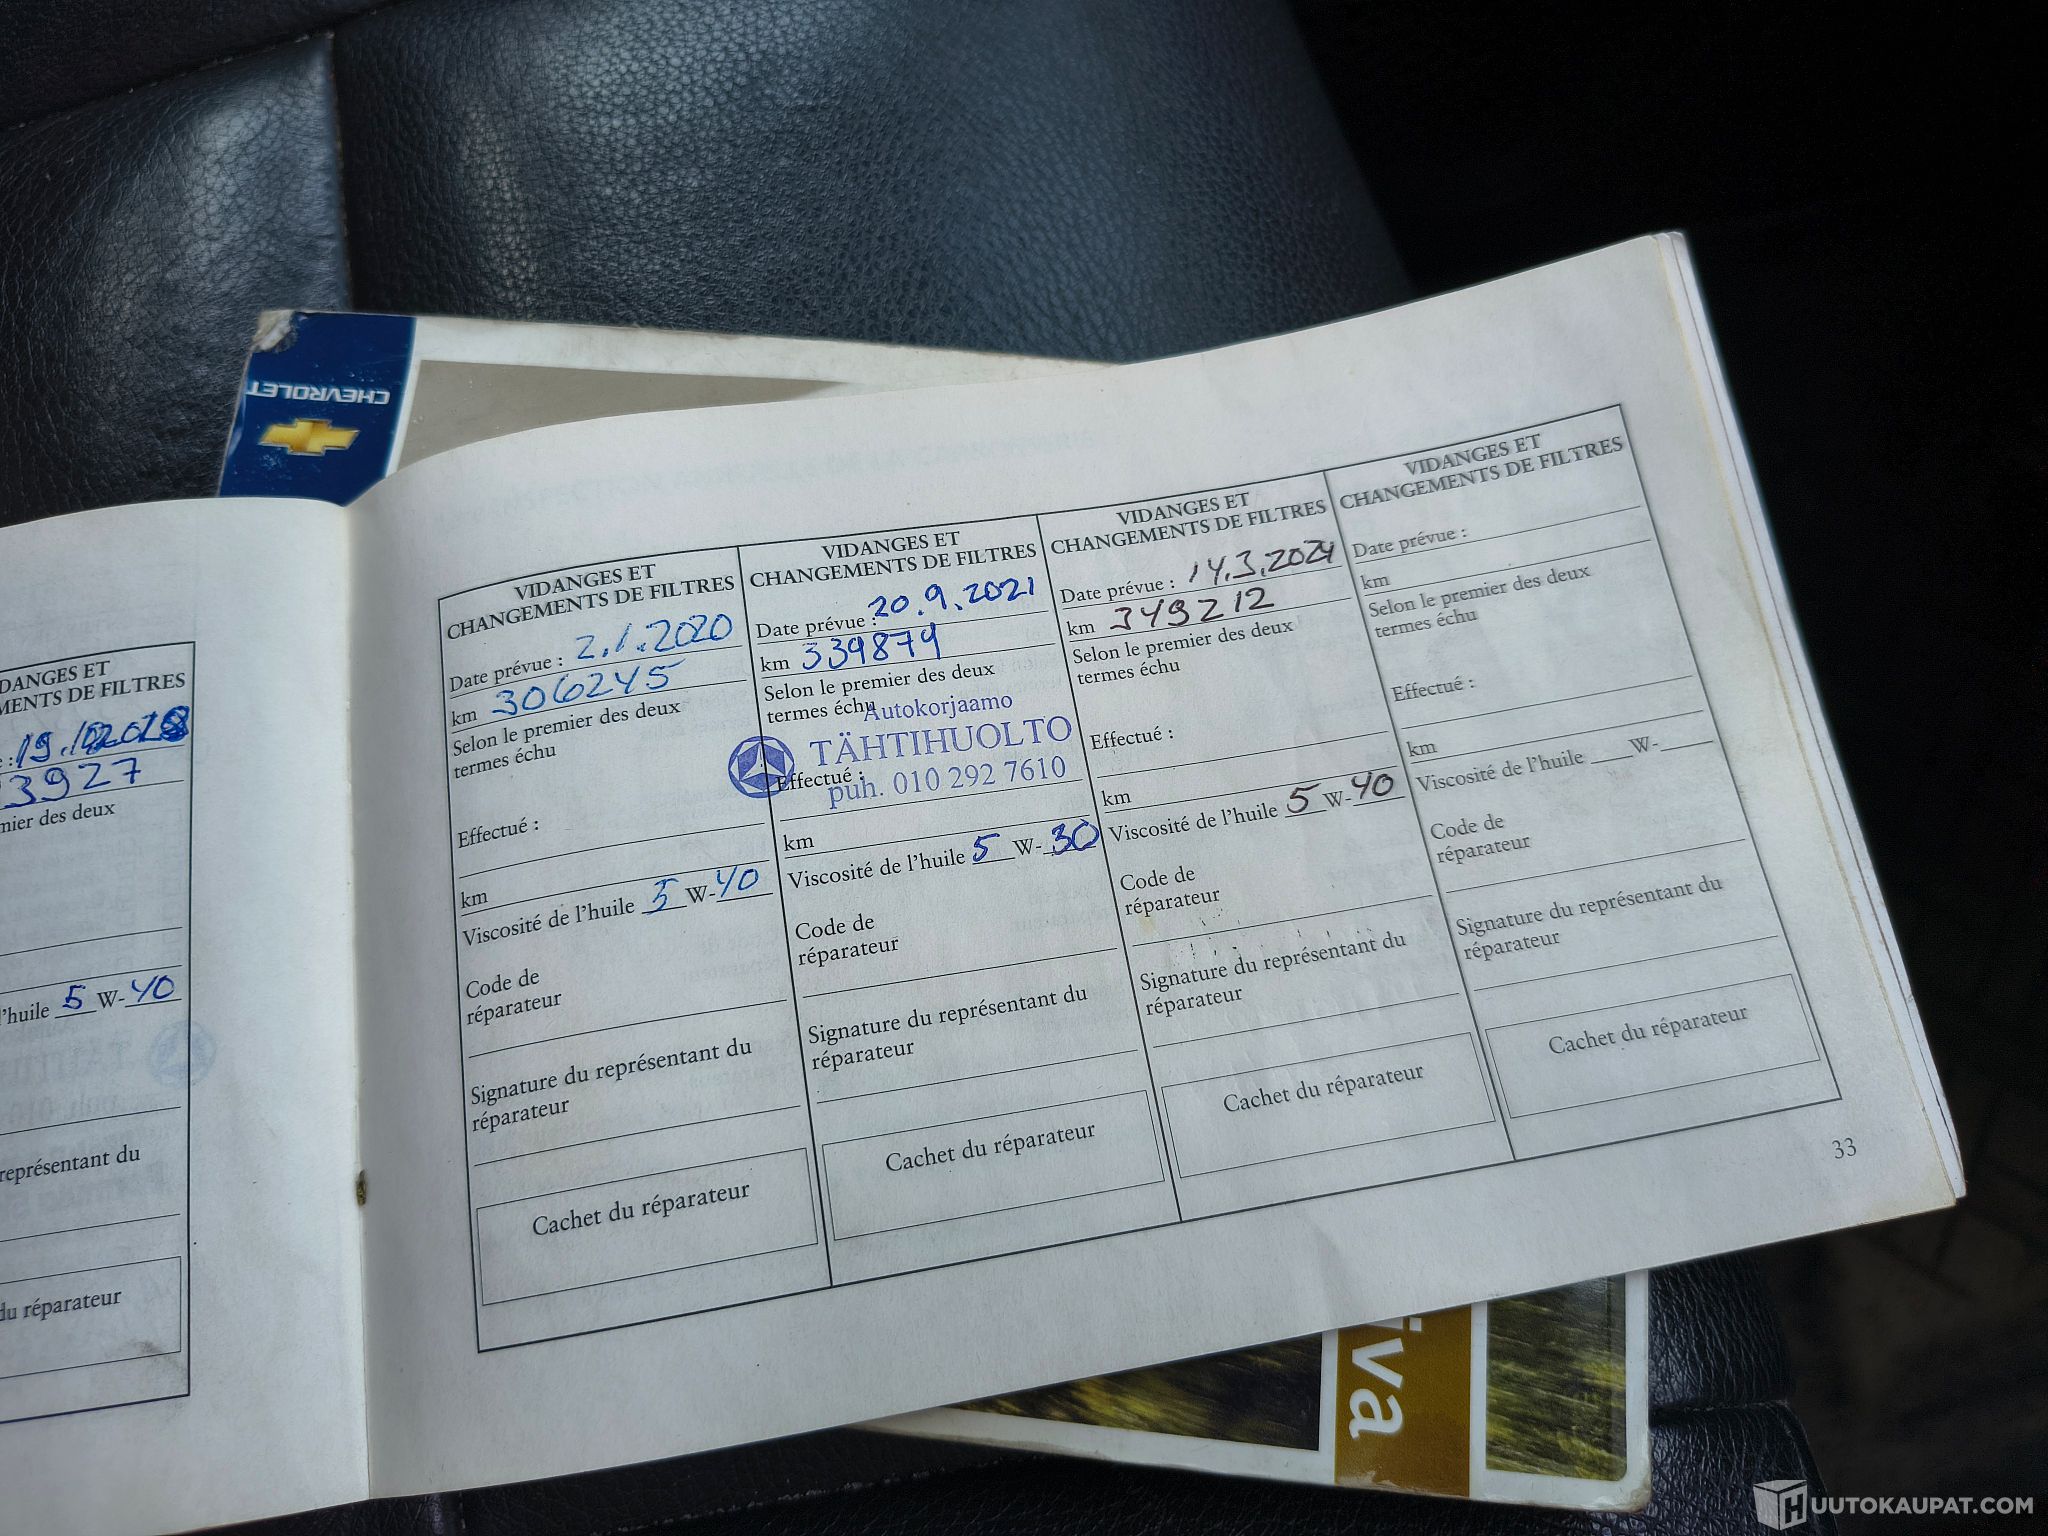 CHEVROLET
DANGES ET
MENTS DE FILTRES
3927
mier des deux
l'huile 5 W-40
représentant du
du réparateur
VIDANGES ET
CHANGEMENTS DE FILTRES
Date prévue : 2.1.2020
km 306245
Selon le premier des deux
termes échu
Effectué :
km
Viscosité de l'huile 5 W-40
Code de
réparateur
Signature du représentant du
réparateur
Cachet du réparateur
VIDANGES ET
CHANGEMENTS DE FILTRES
Date prévue : 20.9.2021
km 339879
Selon le premier des deux
termes échu
Autokorjaamo
TÄHTIHUOLTO
Effectué :
puh. 010 292 7610
km
Viscosité de l'huile 5 W-30
Code de
réparateur
Signature du représentant du
réparateur
Cachet du réparateur
VIDANGES ET
CHANGEMENTS DE FILTRES
Date prévue : 14.3.2024
km 349212
Selon le premier des deux
termes échu
Effectué :
km
Viscosité de l'huile 5 W-40
Code de
réparateur
Signature du représentant du
réparateur
Cachet du réparateur
VIDANGES ET
CHANGEMENTS DE FILTRES
Date prévue :
km
Selon le premier des deux
termes échu
Effectué :
km
Viscosité de l'huile ___W-____
Code de
réparateur
Signature du représentant du
réparateur
Cachet du réparateur
33
iva
HUUTOKAUPAT.COM